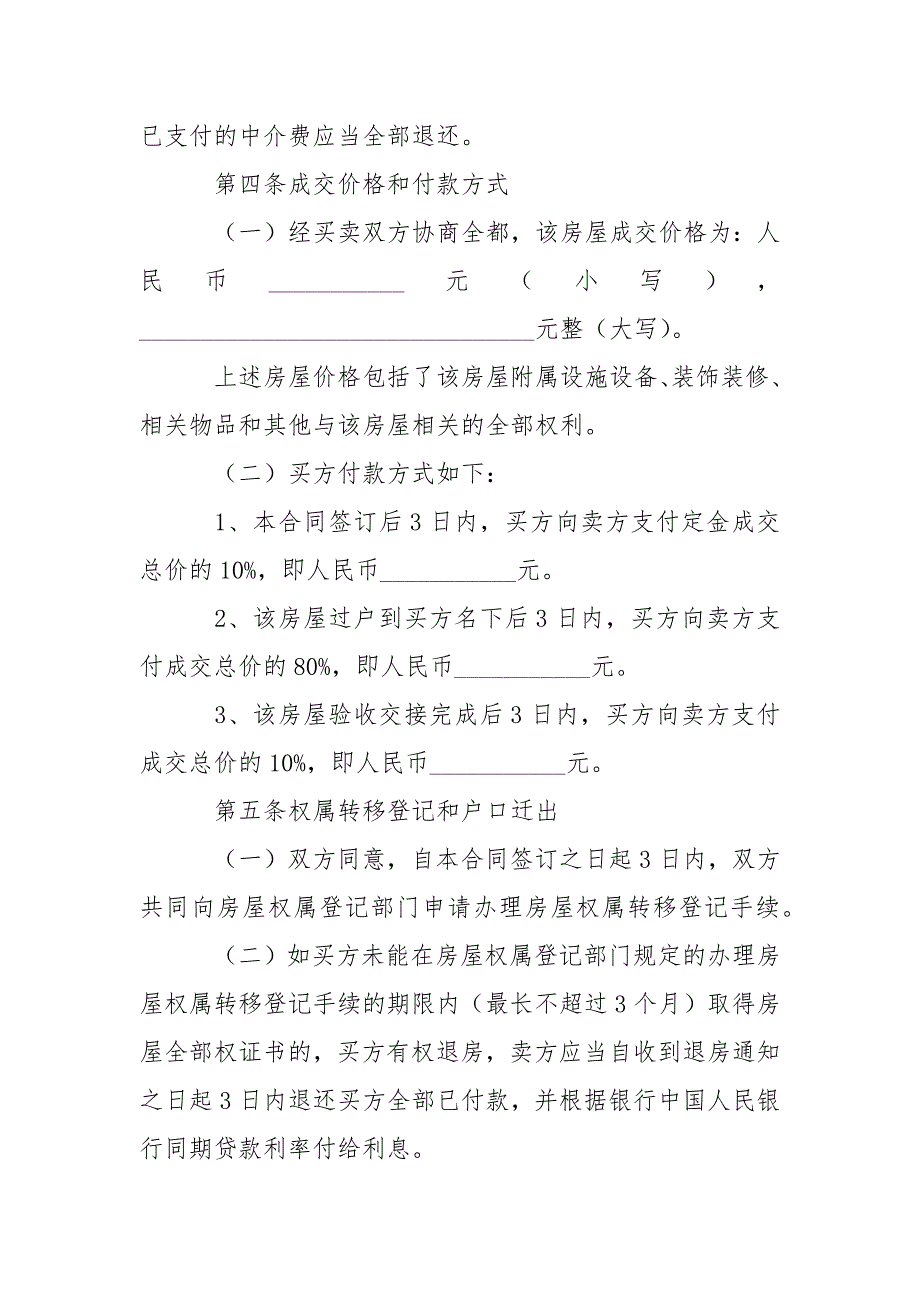 已支付的中介费应当全部退还。
第四条成交价格和付款方式
（一）经买卖双方协商全都，该房屋成交价格为：人
民币___________元（小写），
________________________________元整（大写）。
上述房屋价格包括了该房屋附属设施设备、装饰装修、
相关物品和其他与该房屋相关的全部权利。
（二）买方付款方式如下：
1、本合同签订后3日内，买方向卖方支付定金成交
总价的10%，即人民币___________元。
2、该房屋过户到买方名下后3日内，买方向卖方支
付成交总价的80%，即人民币___________元。
3、该房屋验收交接完成后3日内，买方向卖方支付
成交总价的10%，即人民币___________元。
第五条权属转移登记和户口迁出
（一）双方同意，自本合同签订之日起3日内，双方
共同向房屋权属登记部门申请办理房屋权属转移登记手续。
（二）如买方未能在房屋权属登记部门规定的办理房
屋权属转移登记手续的期限内（最长不超过3个月）取得房
屋全部权证书的，买方有权退房，卖方应当自收到退房通知
之日起3日内退还买方全部已付款，并根据银行中国人民银
行同期贷款利率付给利息。